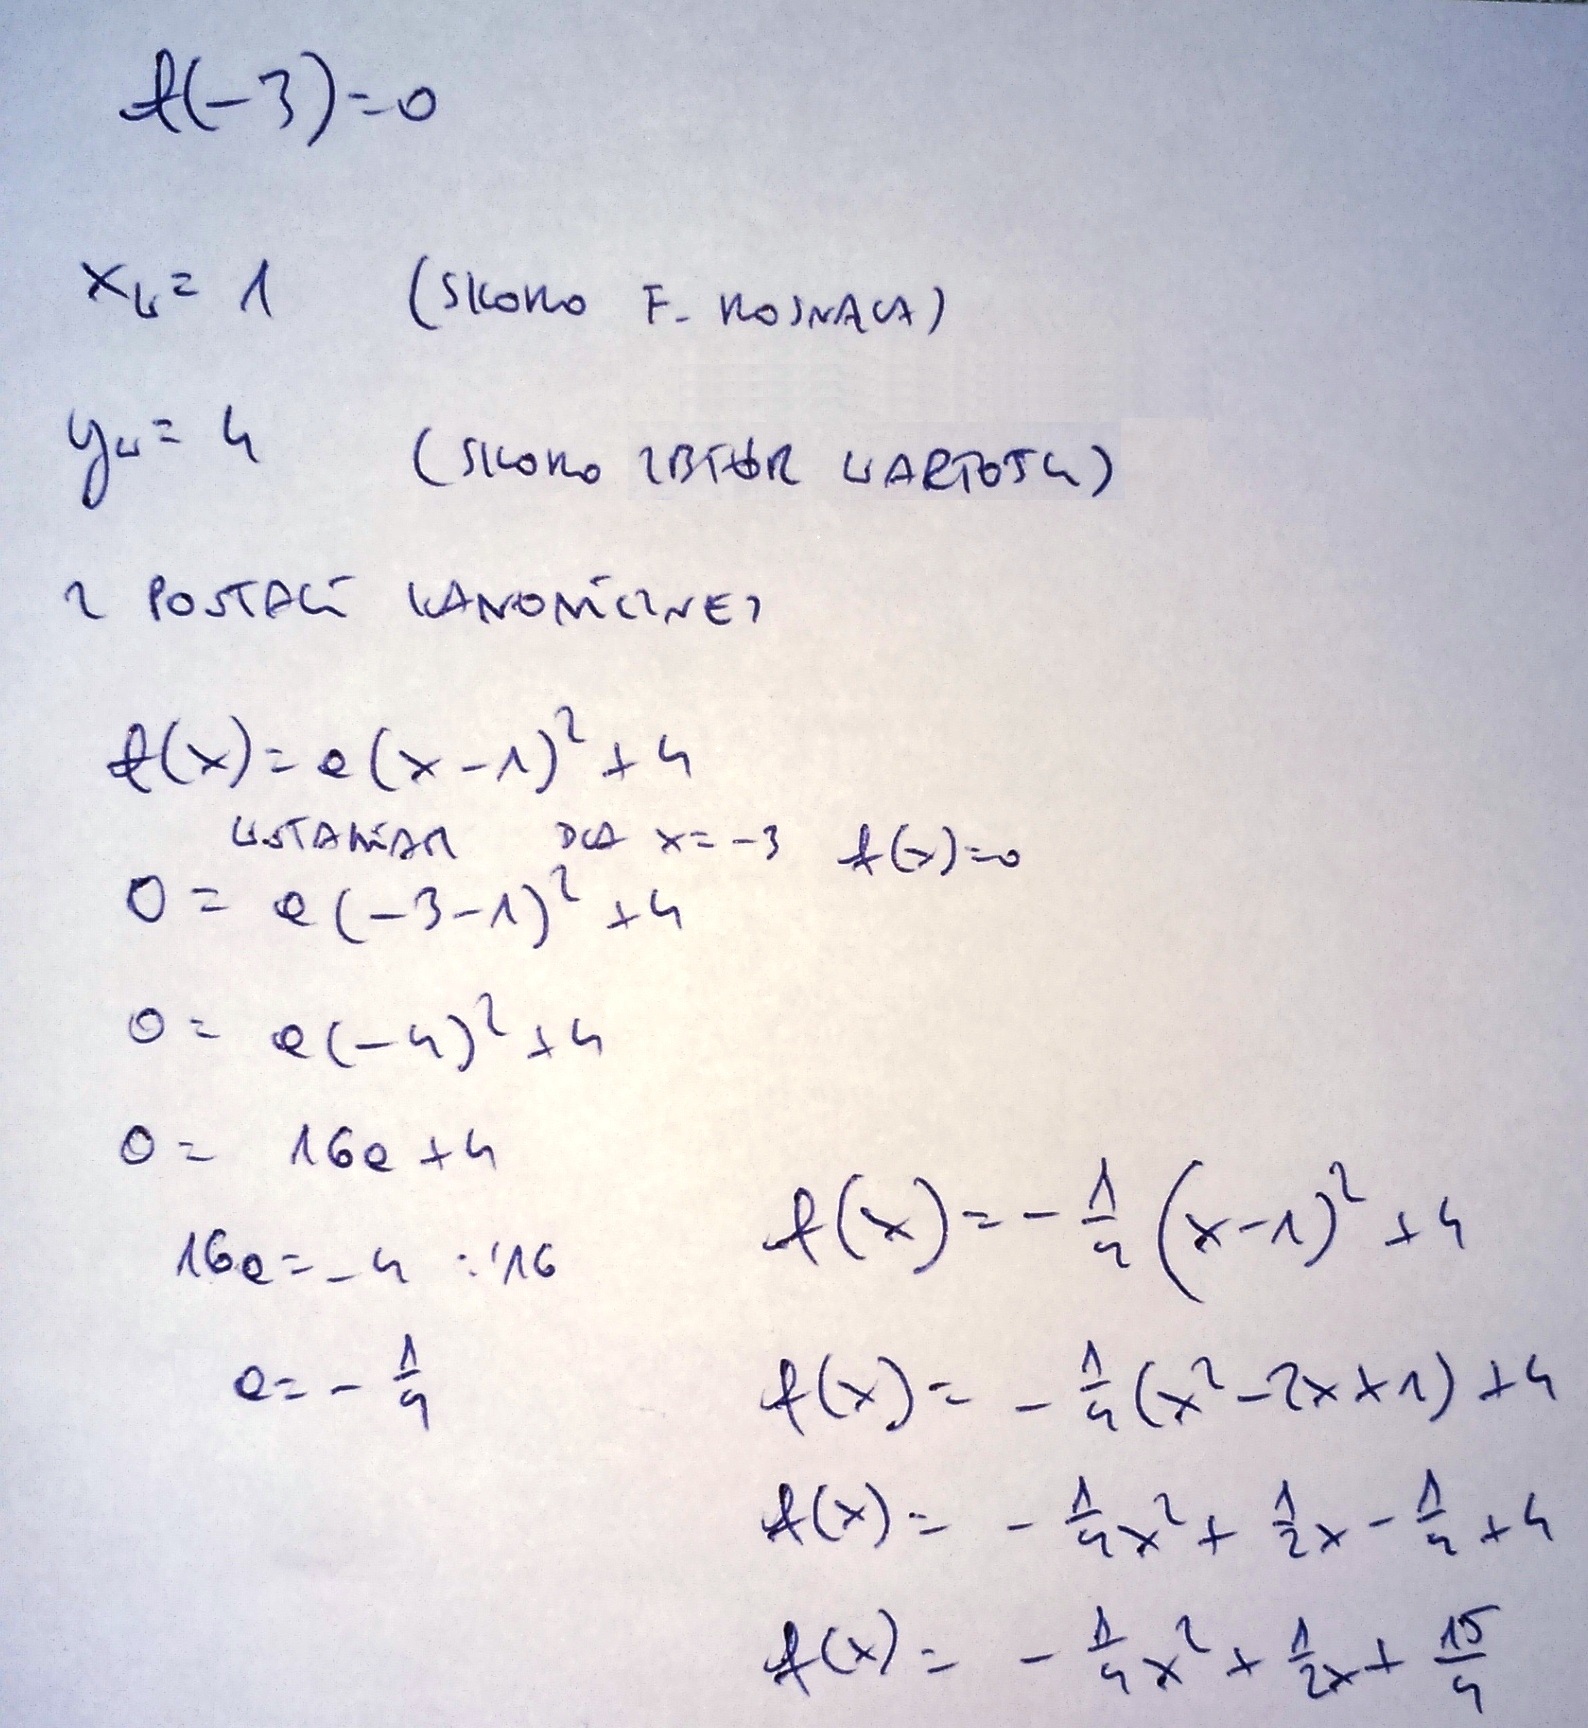 f(-3)=0
xw = 1 (SKORO F. ROSNĄCA)
yw = 4 (SKORO ZBIÓR WARTOŚCI)
Z POSTACI KANONICZNEJ
f(x) = a(x-1)² + 4
WSTAWIAM DLA x = -3 f(x)=0
0 = a(-3-1)² + 4
0 = a(-4)² + 4
0 = 16a + 4
16a = -4 :16
a = - 1/4
f(x) = - 1/4 (x-1)² + 4
f(x) = - 1/4 (x² - 2x + 1) + 4
f(x) = - 1/4 x² + 1/2 x - 1/4 + 4
f(x) = - 1/4 x² + 1/2 x + 15/4